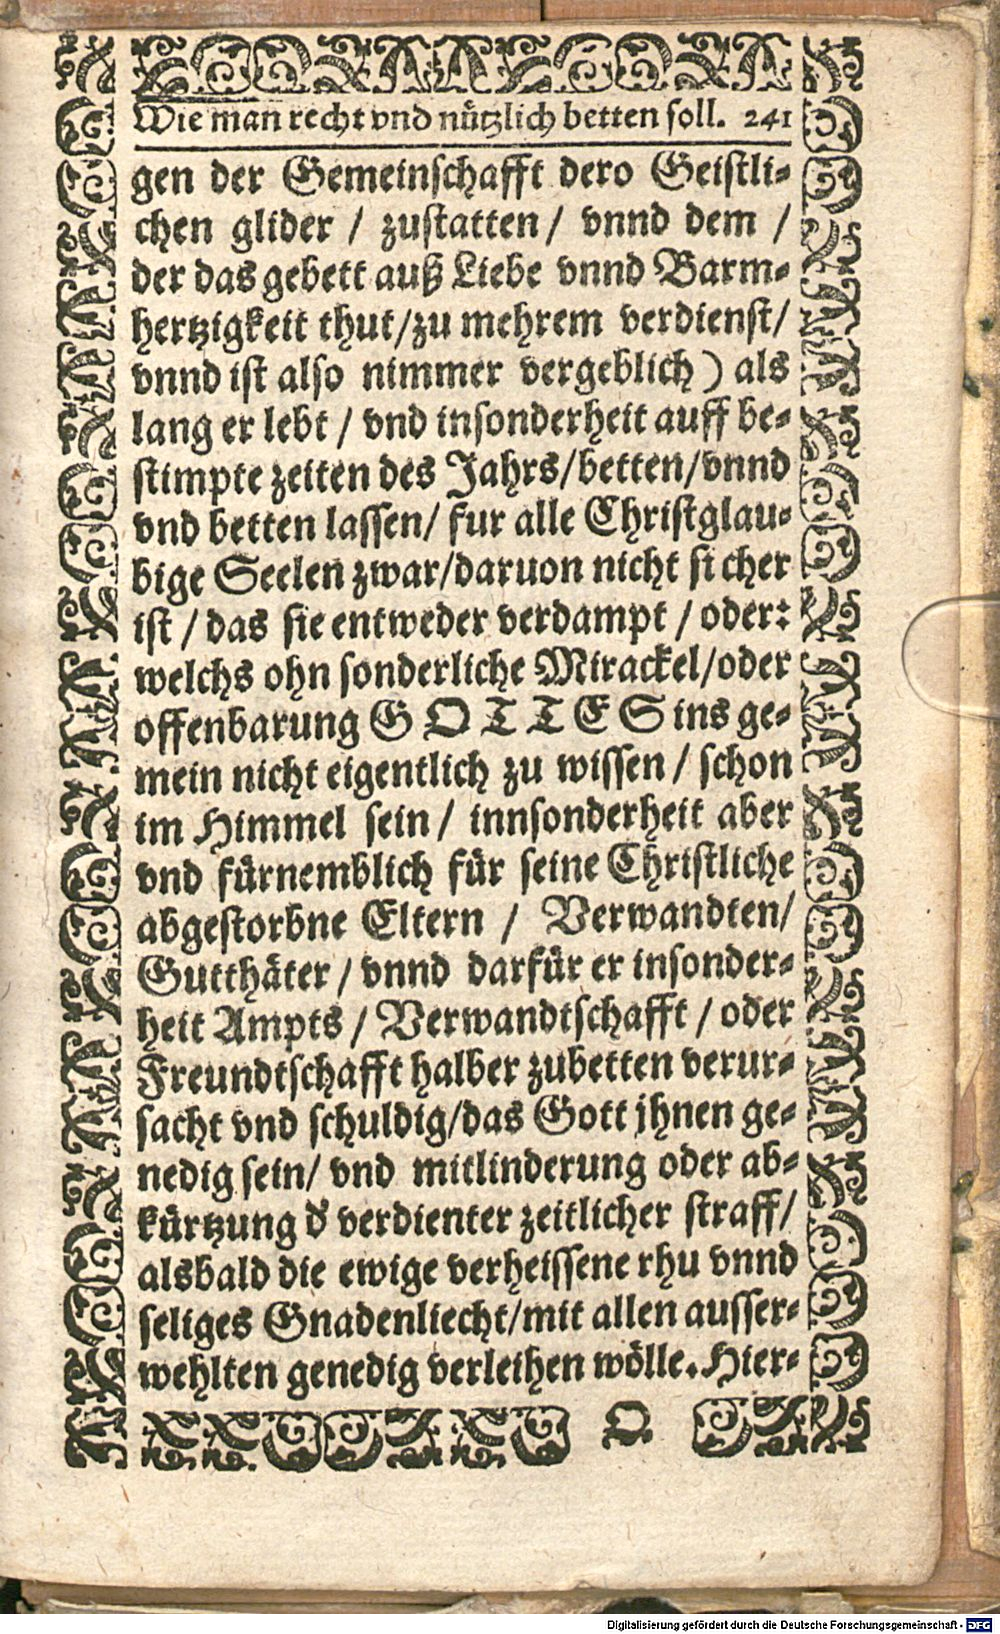 Wie man recht vnd nützlich betten soll. 241
gen der Gemeinschafft dero Geistli-
chen glider / zustatten / vnnd dem /
der das gebett auß Liebe vnnd Barm-
hertzigkeit thut/zu mehrem verdienst/
vnnd ist also nimmer vergeblich) als
lang er lebt / vnd insonderheit auff be-
stimpte zeiten des Jahrs/betten/vnnd
vnd betten lassen/ fur alle Christglau-
bige Seelen zwar/daruon nicht sicher
ist / das sie entweder verdampt / oder:
welchs ohn sonderliche Mirackel/oder
offenbarung GOTTES ins ge-
mein nicht eigentlich zu wissen / schon
im Himmel sein / innsonderheit aber
vnd fürnemblich für seine Christliche
abgestorbne Eltern / Verwandten/
Gutthäter / vnnd darfür er insonder-
heit Ampts / Verwandtschafft / oder
Freundtschafft halber zubetten verur-
sacht vnd schuldig/das Gott jhnen ge-
nedig sein/ vnd mitlinderung oder ab-
kürtzung d' verdienter zeitlicher straff/
alsbald die ewige verheissene rhu vnnd
seliges Gnadenliecht/mit allen ausser-
wehlten genedig verleihen wölle. Hier-
Q.
Digitalisierung gefördert durch die Deutsche Forschungsgemeinschaft - DFG